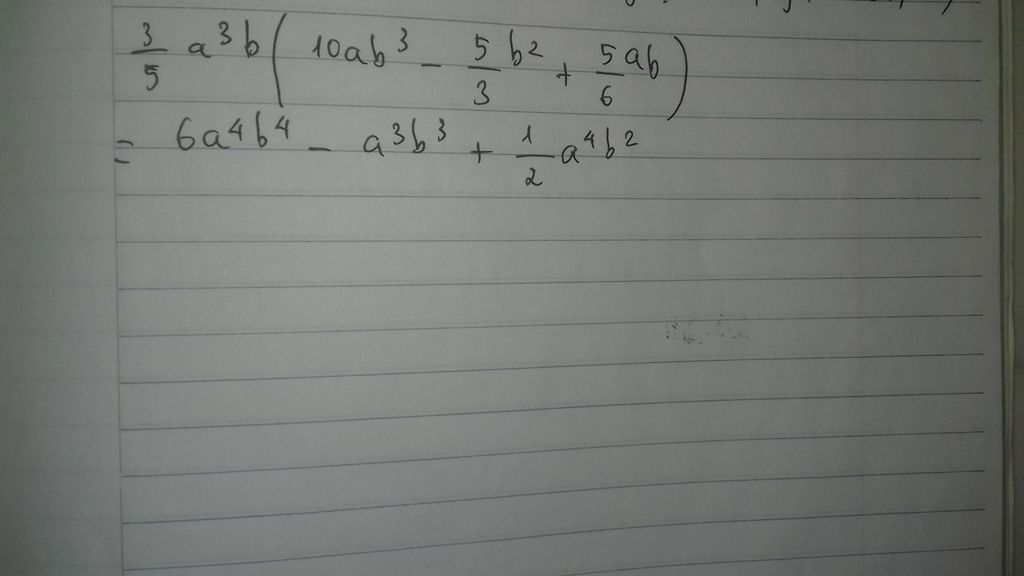 3/5 a³b ( 10ab³ - 5/3 b² + 5/6 ab )
= 6a⁴b⁴ - a³b³ + 1/2 a⁴b²